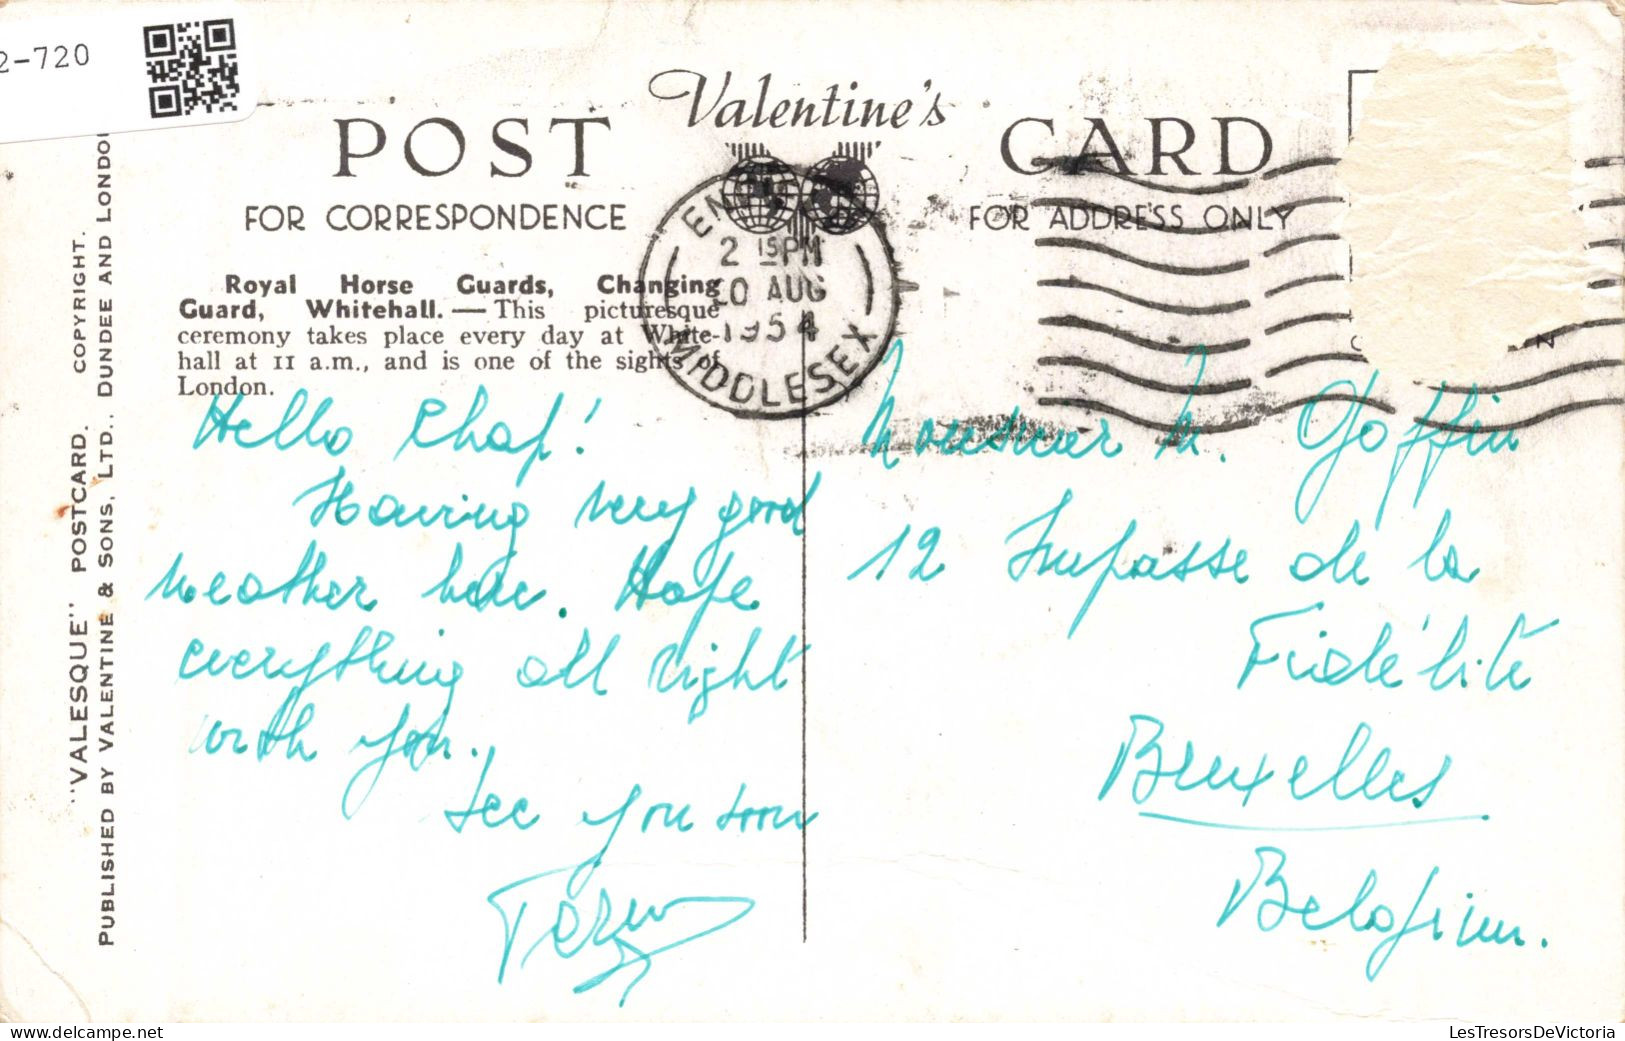 2-720
Valentine's
POST CARD
FOR CORRESPONDENCE
FOR ADDRESS ONLY
2 15 PM
20 AUG
1954
MIDDLESEX
Royal Horse Guards, Changing
Guard, Whitehall. — This picturesque
ceremony takes place every day at White-
hall at 11 a.m., and is one of the sights of
London.
"VALESQUE" POSTCARD. COPYRIGHT.
PUBLISHED BY VALENTINE & SONS, LTD., DUNDEE AND LONDO
Hello Chap!
Having very good
weather here. Hope
everything all right
with you.
See you soon
Monsieur M. Goffin
12 Impasse de la
Fidélité
Bruxelles
Belgium.
LesTresorsDeVictoria
delcampe.net